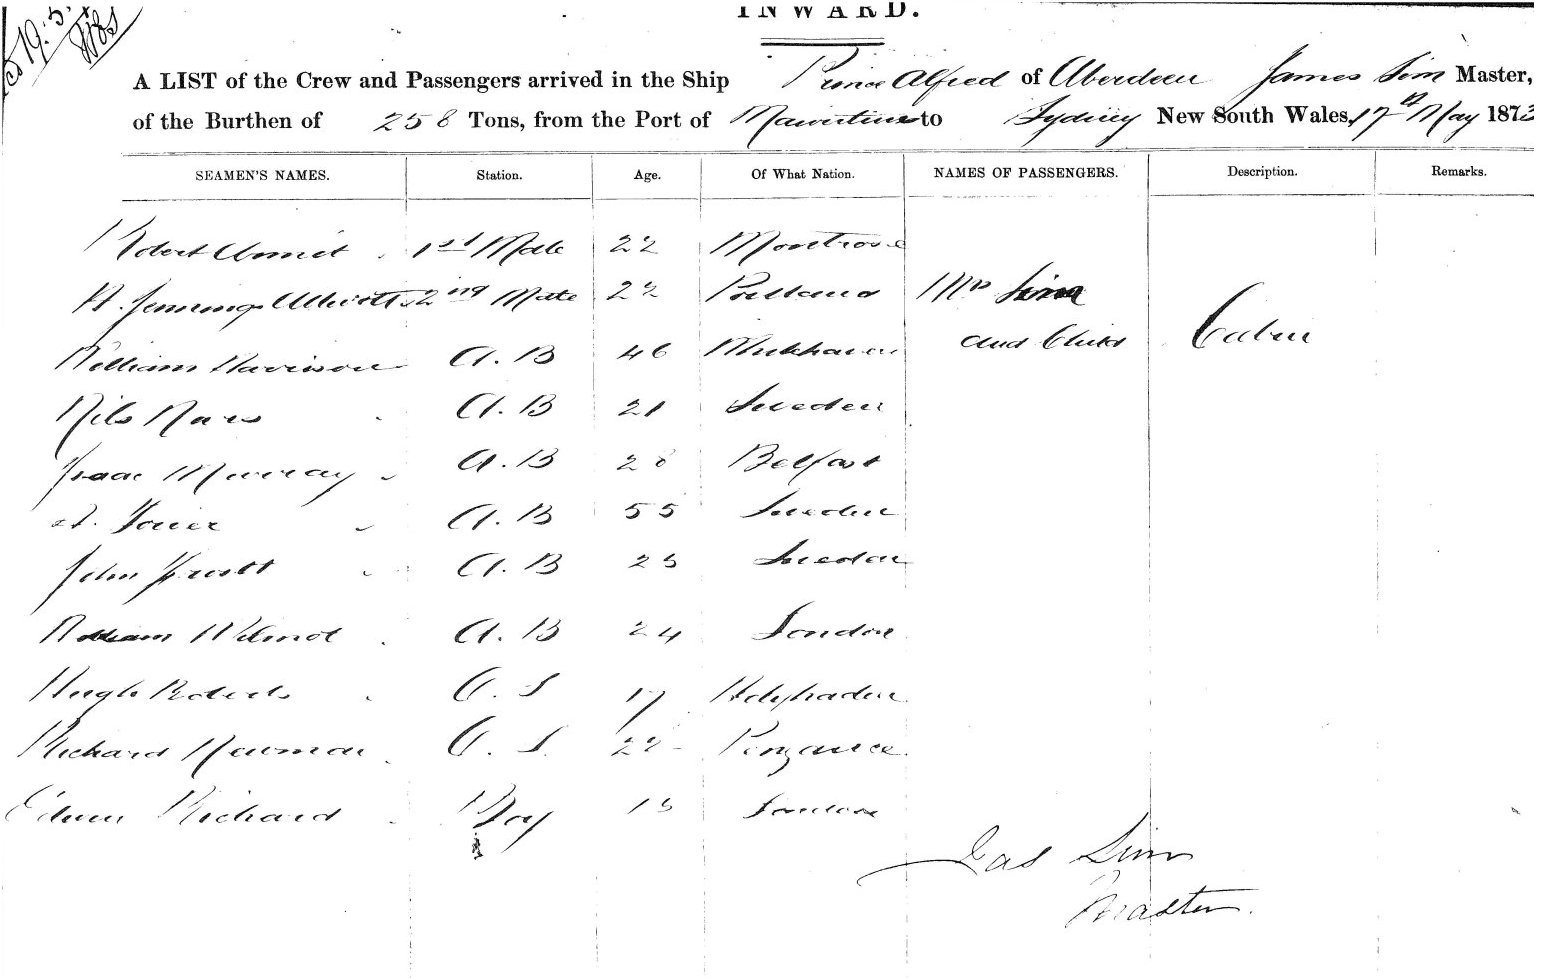 INWARD.
A LIST of the Crew and Passengers arrived in the Ship Prince Alfred of Aberdeen James Sim Master,
of the Burthen of 258 Tons, from the Port of Mauritius to Sydney New South Wales, 17th May 1873
SEAMEN'S NAMES. Station. Age. Of What Nation. NAMES OF PASSENGERS. Description. Remarks.
Robert 1st Mate 22 Montrose
Jennings 2nd Mate 22 Portland Mrs Sim
and Child Cabin
William Davison A. B 46
Nils A. B 21 Sweden
Isaac Murray A. B 28 Belfast
A. B 55 Sweden
John A. B 25 Sweden
William Wilmot A. B 24 London
Hugh Roberts O. S 17
Richard Newman O. S. 22 Penzance
Edwin Richard Boy 15 London
Jas Sim
Master.